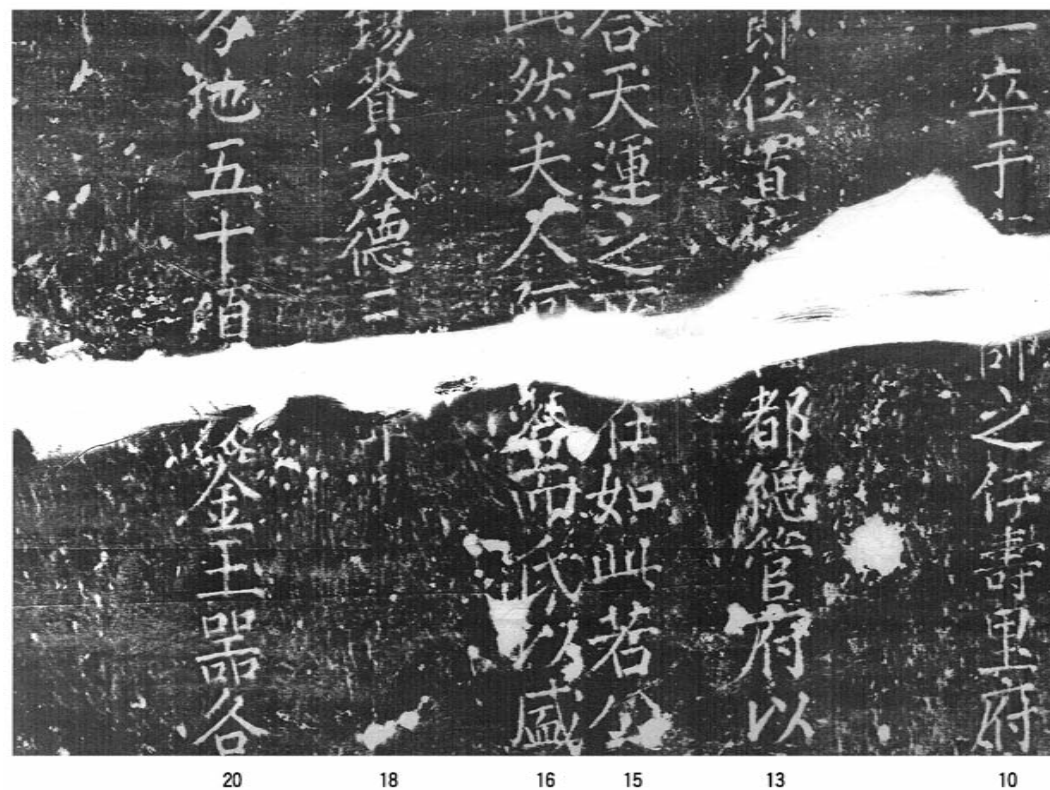 一卒于師之仁壽里府
即位置都總管府以
合天運之仕如此若公
此然夫人而氏以盛
錫賚大德二十
地五十頃給金玉器各
20 18 16 15 13 10